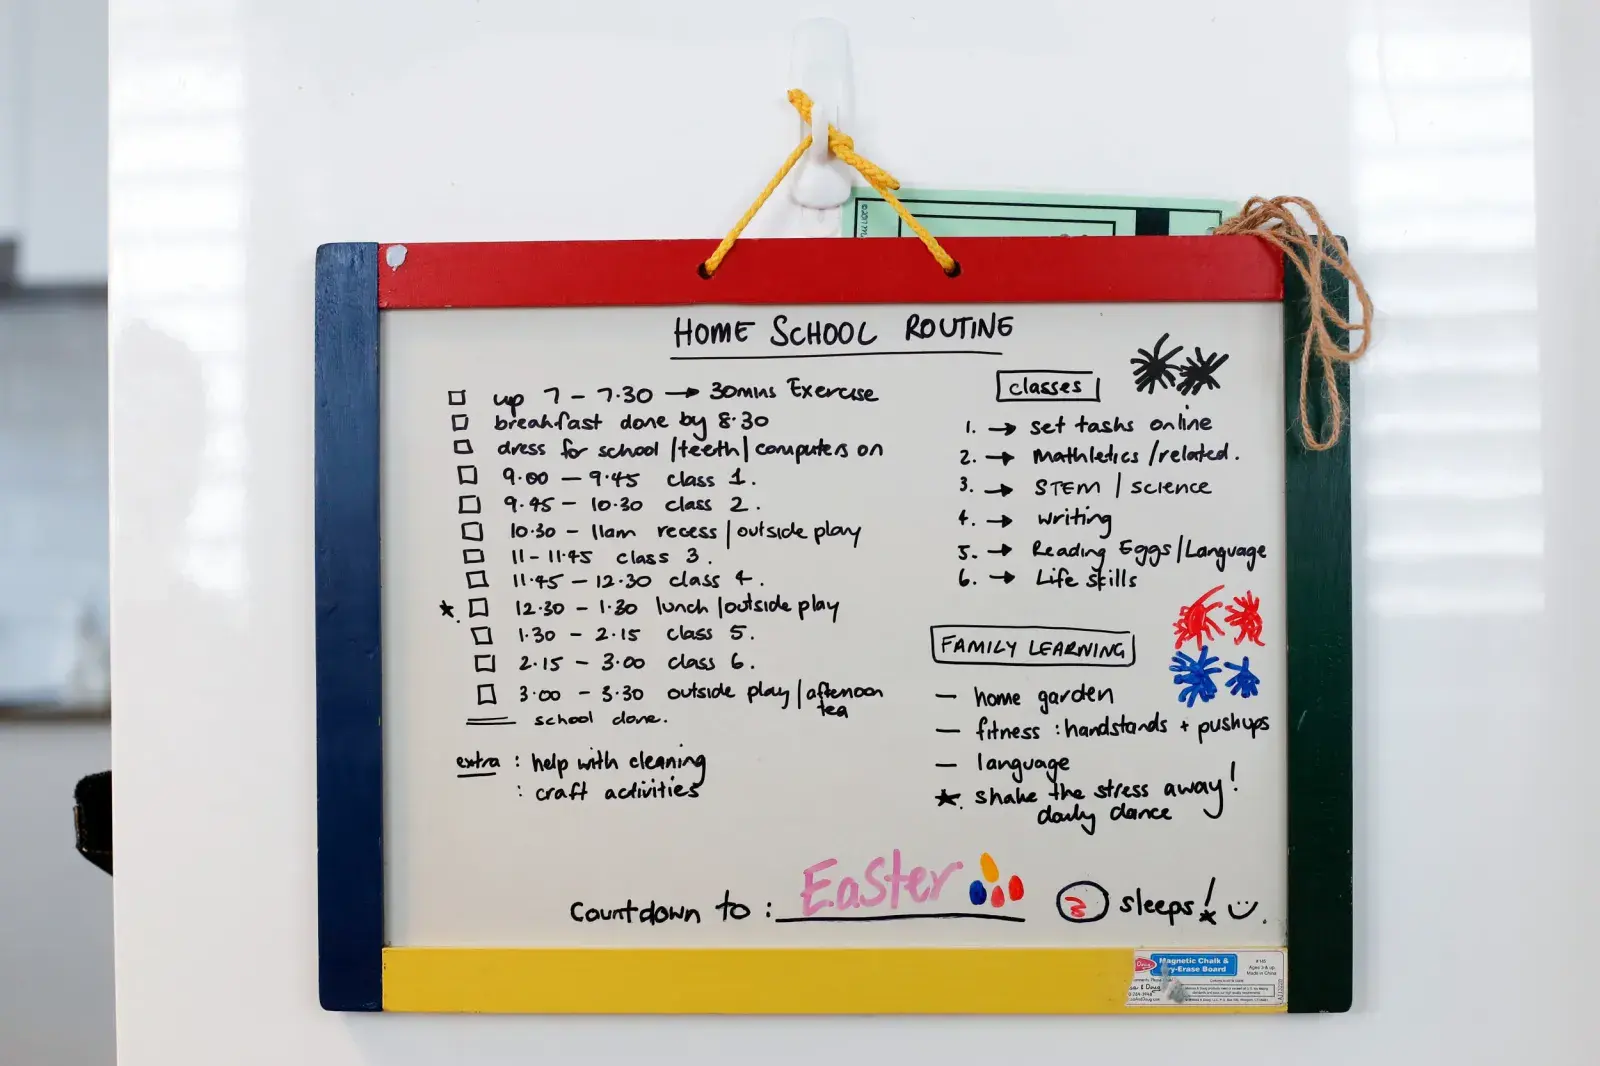 HOME SCHOOL ROUTINE
up 7 - 7.30 → 30mins Exercise
breakfast done by 8.30
dress for school / teeth / computers on
9.00 - 9.45 class 1.
9.45 - 10.30 class 2.
10.30 - 11am recess / outside play
11 - 11.45 class 3.
11.45 - 12.30 class 4.
12.30 - 1.30 lunch / outside play
1.30 - 2.15 class 5.
2.15 - 3.00 class 6.
3.00 - 3.30 outside play / afternoon
tea
school done.
extra : help with cleaning
: craft activities
classes
1. → set tasks online
2. → Mathletics / related.
3. → STEM / science
4. → writing
5. → Reading Eggs / Language
6. → Life skills
FAMILY LEARNING
- home garden
- fitness : handstands + pushups
- language
shake the stress away!
daily dance
Countdown to : Easter 3 sleeps!
Magnetic Chalk &
Dry-Erase Board
#145
Ages 3 & up
Made in China